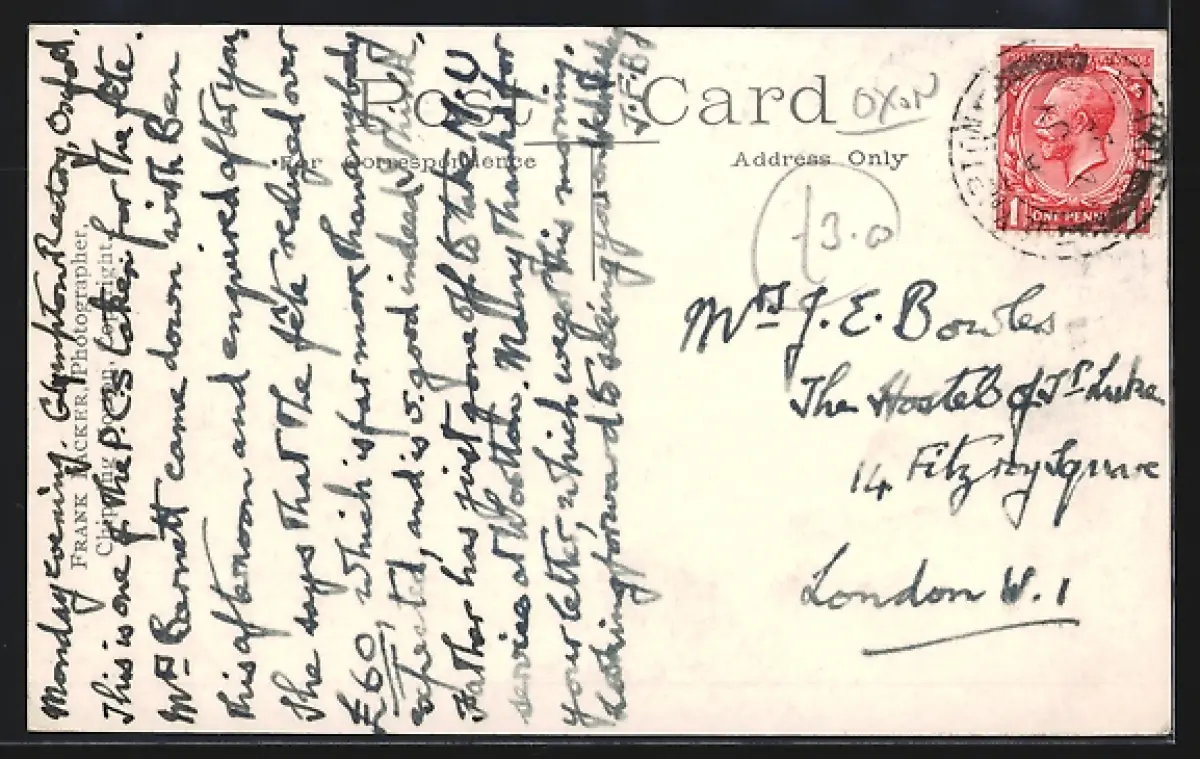 Post Card
OXON
For Correspondence
Address Only
13.0
ONE PENNY
Mrs J. E. Bowles
The Hostel of St Luke
14 Fitzroy Square
London W.1
FRANK PACKER, Photographer,
Chipping Norton. Copyright.
Monday evening. Glympton Rectory, Oxford.
This is one of the P.C.s taken for the fête.
Mrs Barnett came down with Ben
this afternoon and enquired after you
She says that the fête realized over
£60, which is far more than anybody
expected, and is v. good indeed, I think.
Father has just gone off to take the M.U
service at Wootton. Many thanks for
your letter, which we got this morning.
Looking forward to seeing you on
J.F.B.